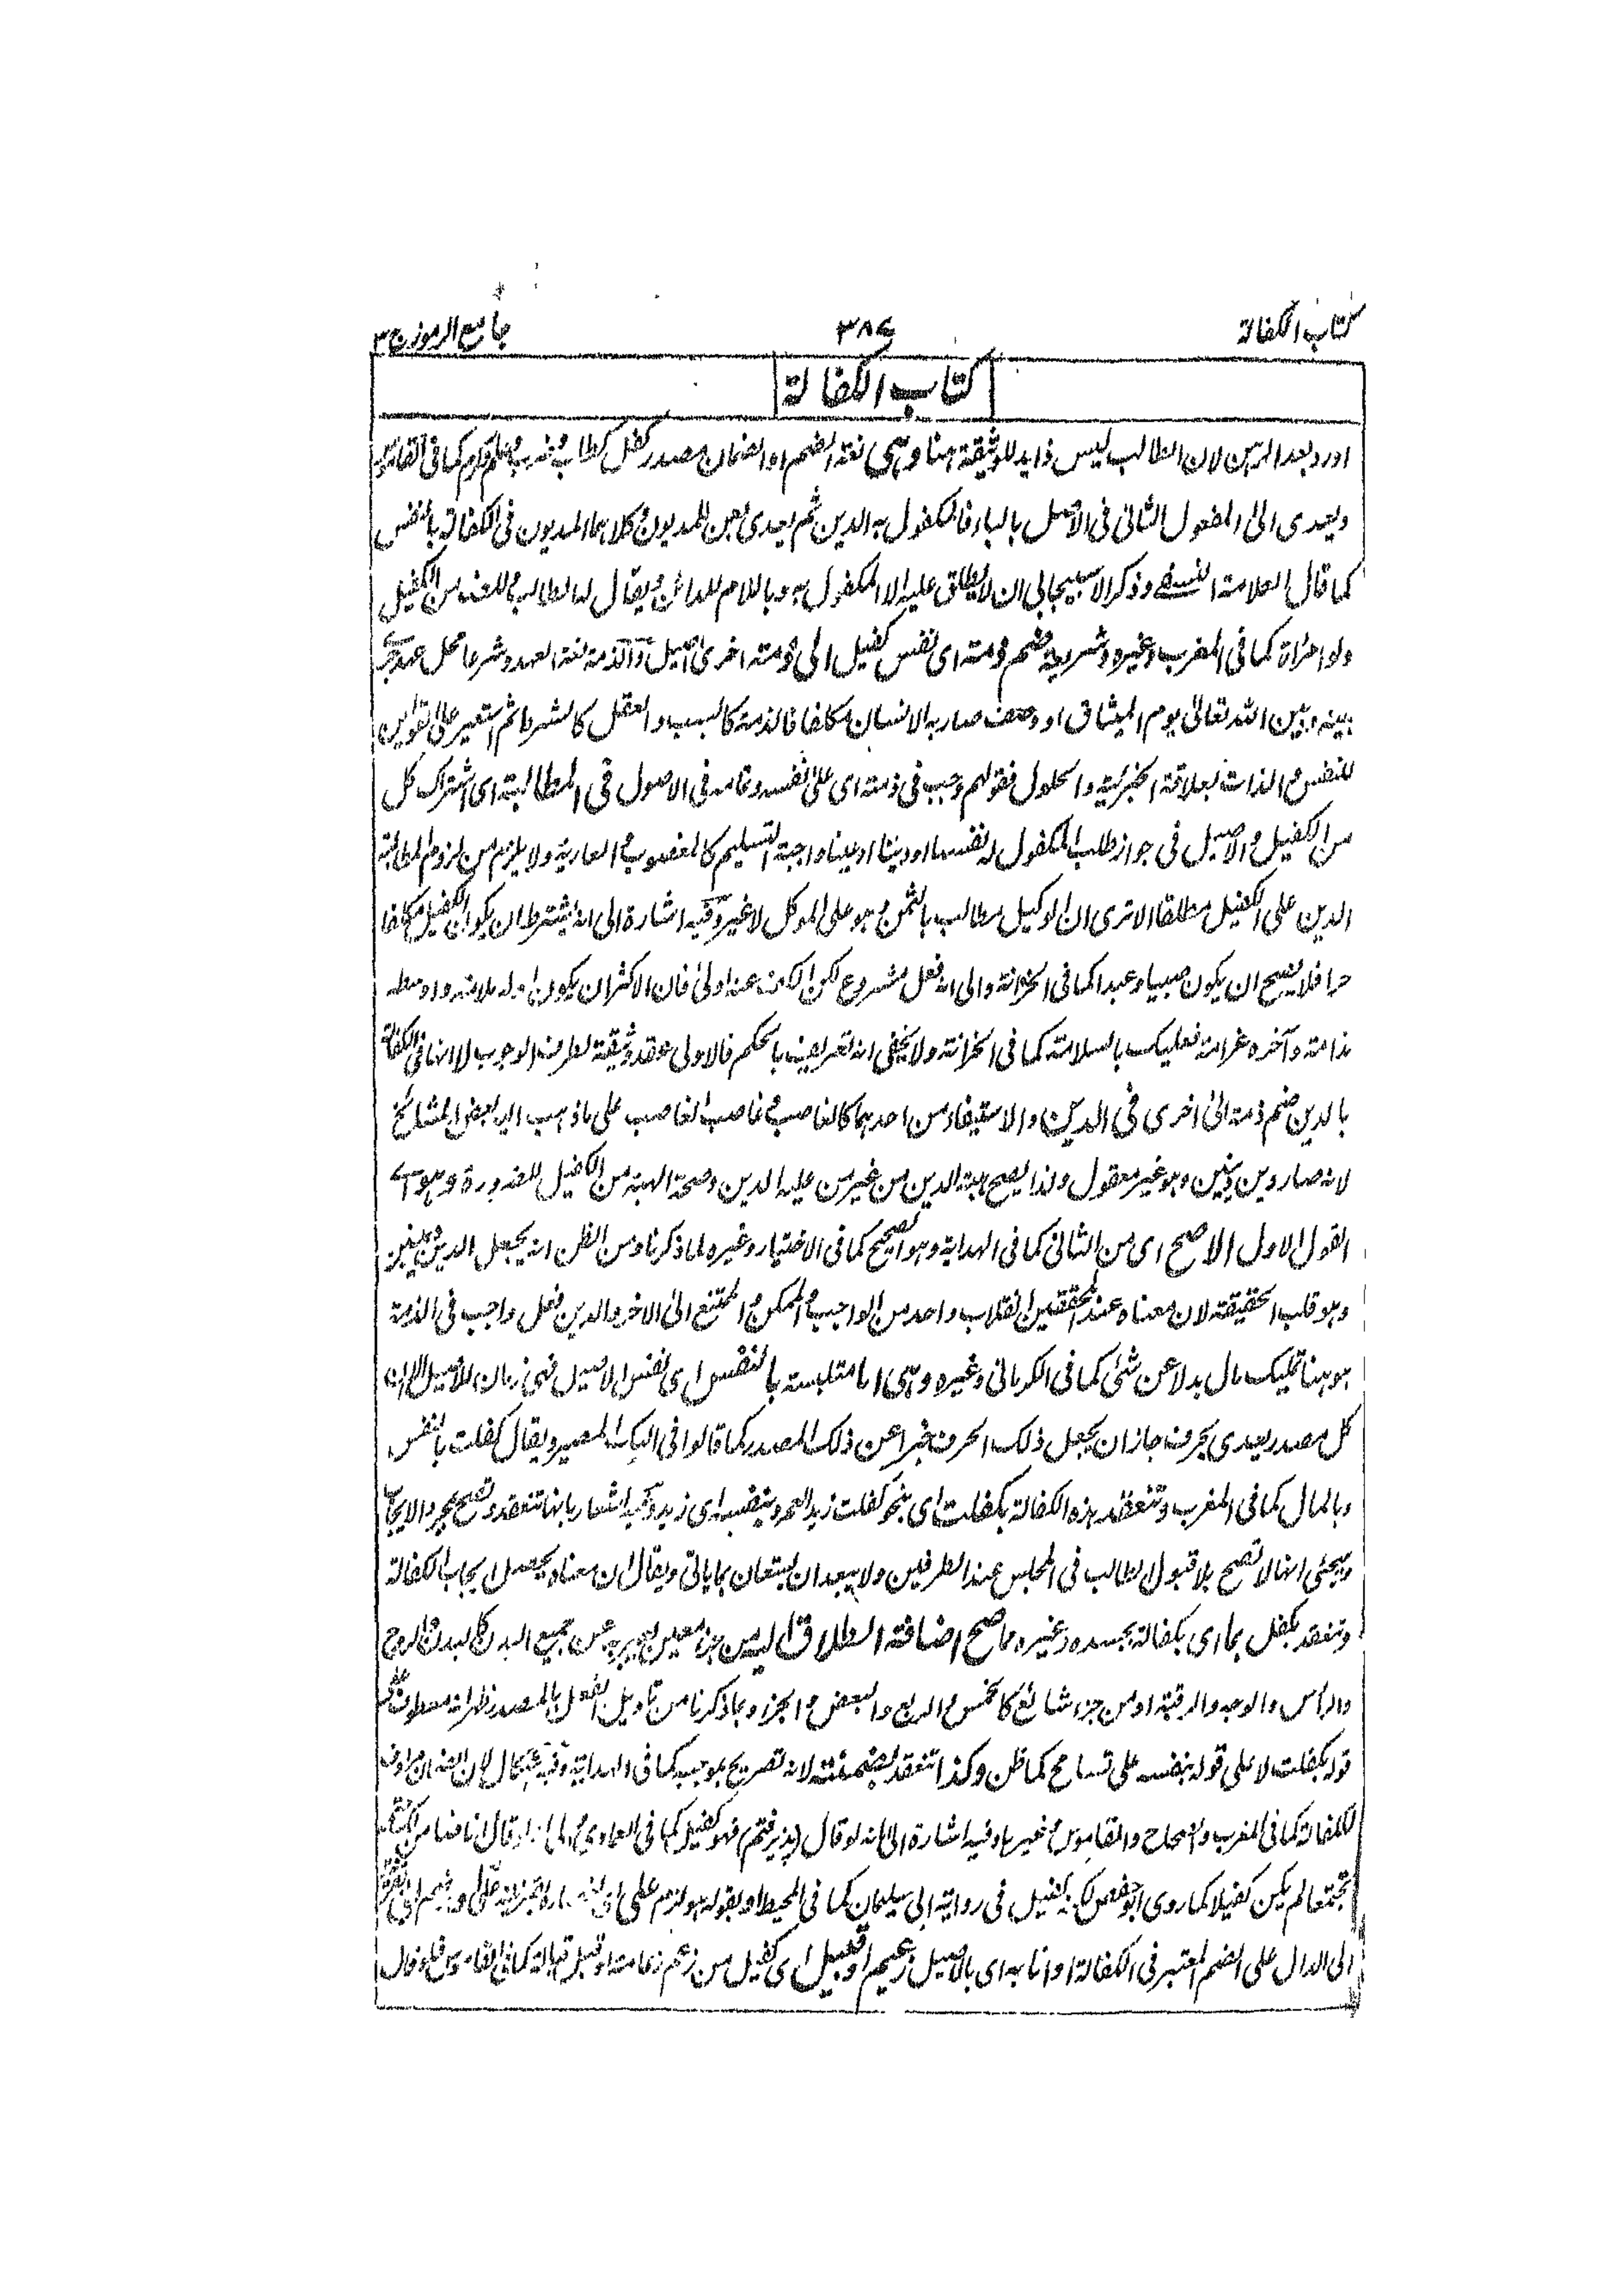 كتاب الكفالة
٣٨٤
جامع الرموز ج ٣
كتاب الكفالة
اورد بعد الرهن لان الطالب ليس فيه للوثيقة هنا وهى لغة الضم او الضمان مصدر كفل كما فى القاموس
ويعدى الى المفعول الثانى فى الاصل بالباء فالمكفول به الدين ثم يعدى بعن للمديون وكلاهما المديون فى الكفالة بالنفس
كما قال العلامة النسفى وذكر الاسبيجابى ان لا يطلق عليه الا المكفول به وباللام للدائن ويقال له الطالب من الكفيل
ولو امرأة كما فى المغرب وغيره وشريعة ضم ذمة اى نفس كفيل الى ذمة اخرى اى اصيل والذمة لغة العهد وشرعا محل عهد جرى
بينه وبين الله تعالى يوم الميثاق او وصف صار به الانسان مكلفا فالذمة كالسبب والعقل كالشرط ثم استعير على القولين
للنفس والذات بعلاقة الجزئية والحلول فقولهم وجب فى ذمته اى على نفسه وتمامه فى الاصول فى المطالبة اى اشتراك كل
من الكفيل والاصيل فى جواز طلب المكفول له نفسا او دينا او عينا واجبة التسليم كالمغصوب والعارية ولا يلزم من لزوم المطالبة
الدين على الكفيل مطلقا الا ترى ان الوكيل مطالب بالثمن وهو على الموكل لا غير وفيه اشارة الى انه يشترط ان يكون الكفيل مكلفا
حرا فلا يصح ان يكون صبيا وعبدا كما فى الخزانة والى انه فعل مشروع لكن الكف عنه اولى فان الاكثر ان يكون اوله ملامة واوسطه
ندامة وآخره غرامة فعليك بالسلامة كما فى الخزانة ولا يخفى انه تعريف بالحكم فالاولى عقد وثيقة لطرف الوجوب لا انها فى الكفالة
بالدين ضم ذمة الى اخرى فى الدين والاستيفاء من احدهما كالغاصب وغاصب الغاصب على ما ذهب اليه بعض المشائخ
لانه صار دين دينين وهو غير معقول ولذا يصح هبة الدين من غير من عليه الدين وصحة الهبة من الكفيل للضرورة وهو اى
القول الاول الاصح اى من الثانى كما فى الهداية وهو الصحيح كما فى الاختيار وغيره لما ذكرنا ومن الظن انه يجعل الدين دينين
وهو قلب الحقيقة لان معناه عند المحققين انقلاب واحد من الواجب والممكن والممتنع الى الاخر والدين فعل واجب فى الذمة
هو هنا تمليك مال بدلا عن شئ كما فى الكرمانى وغيره وهى اما متلبسة بالنفس اى نفس الاصيل فهى
كل مصدر يعدى بحرف جاز ان يجعل ذلك الحرف خبرا عن ذلك المصدر كما قالوا فى اليك المصير ويقال كفلت بالنفس
وبالمال كما فى المغرب وتنعقد هذه الكفالة بكفلت اى بنحو كفلت زيدا لعمرو بنفسه اى زيد وفيه اشعار بانها تنعقد وتصح بمجرد الايجاب
ويجئ انها لا تصح بلا قبول الطالب فى المجلس عند الطرفين ولا يبعد ان يستعان بما يأتى ويقال ان معناه يحصل ايجاب الكفالة
وتنعقد بكفل بما اى بكفالة بجسده وغيره مما صح اضافة الطلاق اليه من جزء معين يعبر به عن جميع البدن كالبدن والروح
والرأس والوجه والرقبة او من جزء شائع كالخمس والربع والبعض والجزء وبما ذكرنا من تأويل الفعل بالمصدر ظهر انه معطوف على
قوله بكفلت لا على قوله بنفسه على تسامح كما ظن وكذا تنعقد بضمنته لانه تصريح بموجبه كما فى الهداية وفيه لان الضمان مرادف
للكفالة كما فى المغرب والصحاح والقاموس وغيرها وفيه اشارة الى انه لو قال (پذيرفتم) فهو كفيل كما فى العمادى قال انا ضامن
تجتمعا لم يكن كفيلا كما روى ابو حفص لكنه كفيل فى رواية ابى سليمان كما فى المحيط او بقوله هو لازم على اى
الى الدال على الضم المعتبر فى الكفالة او انا به اى بالاصيل زعيم او قبيل اى كفيل من زعم زعامة او قبل قبالة كما فى القاموس فلو قال